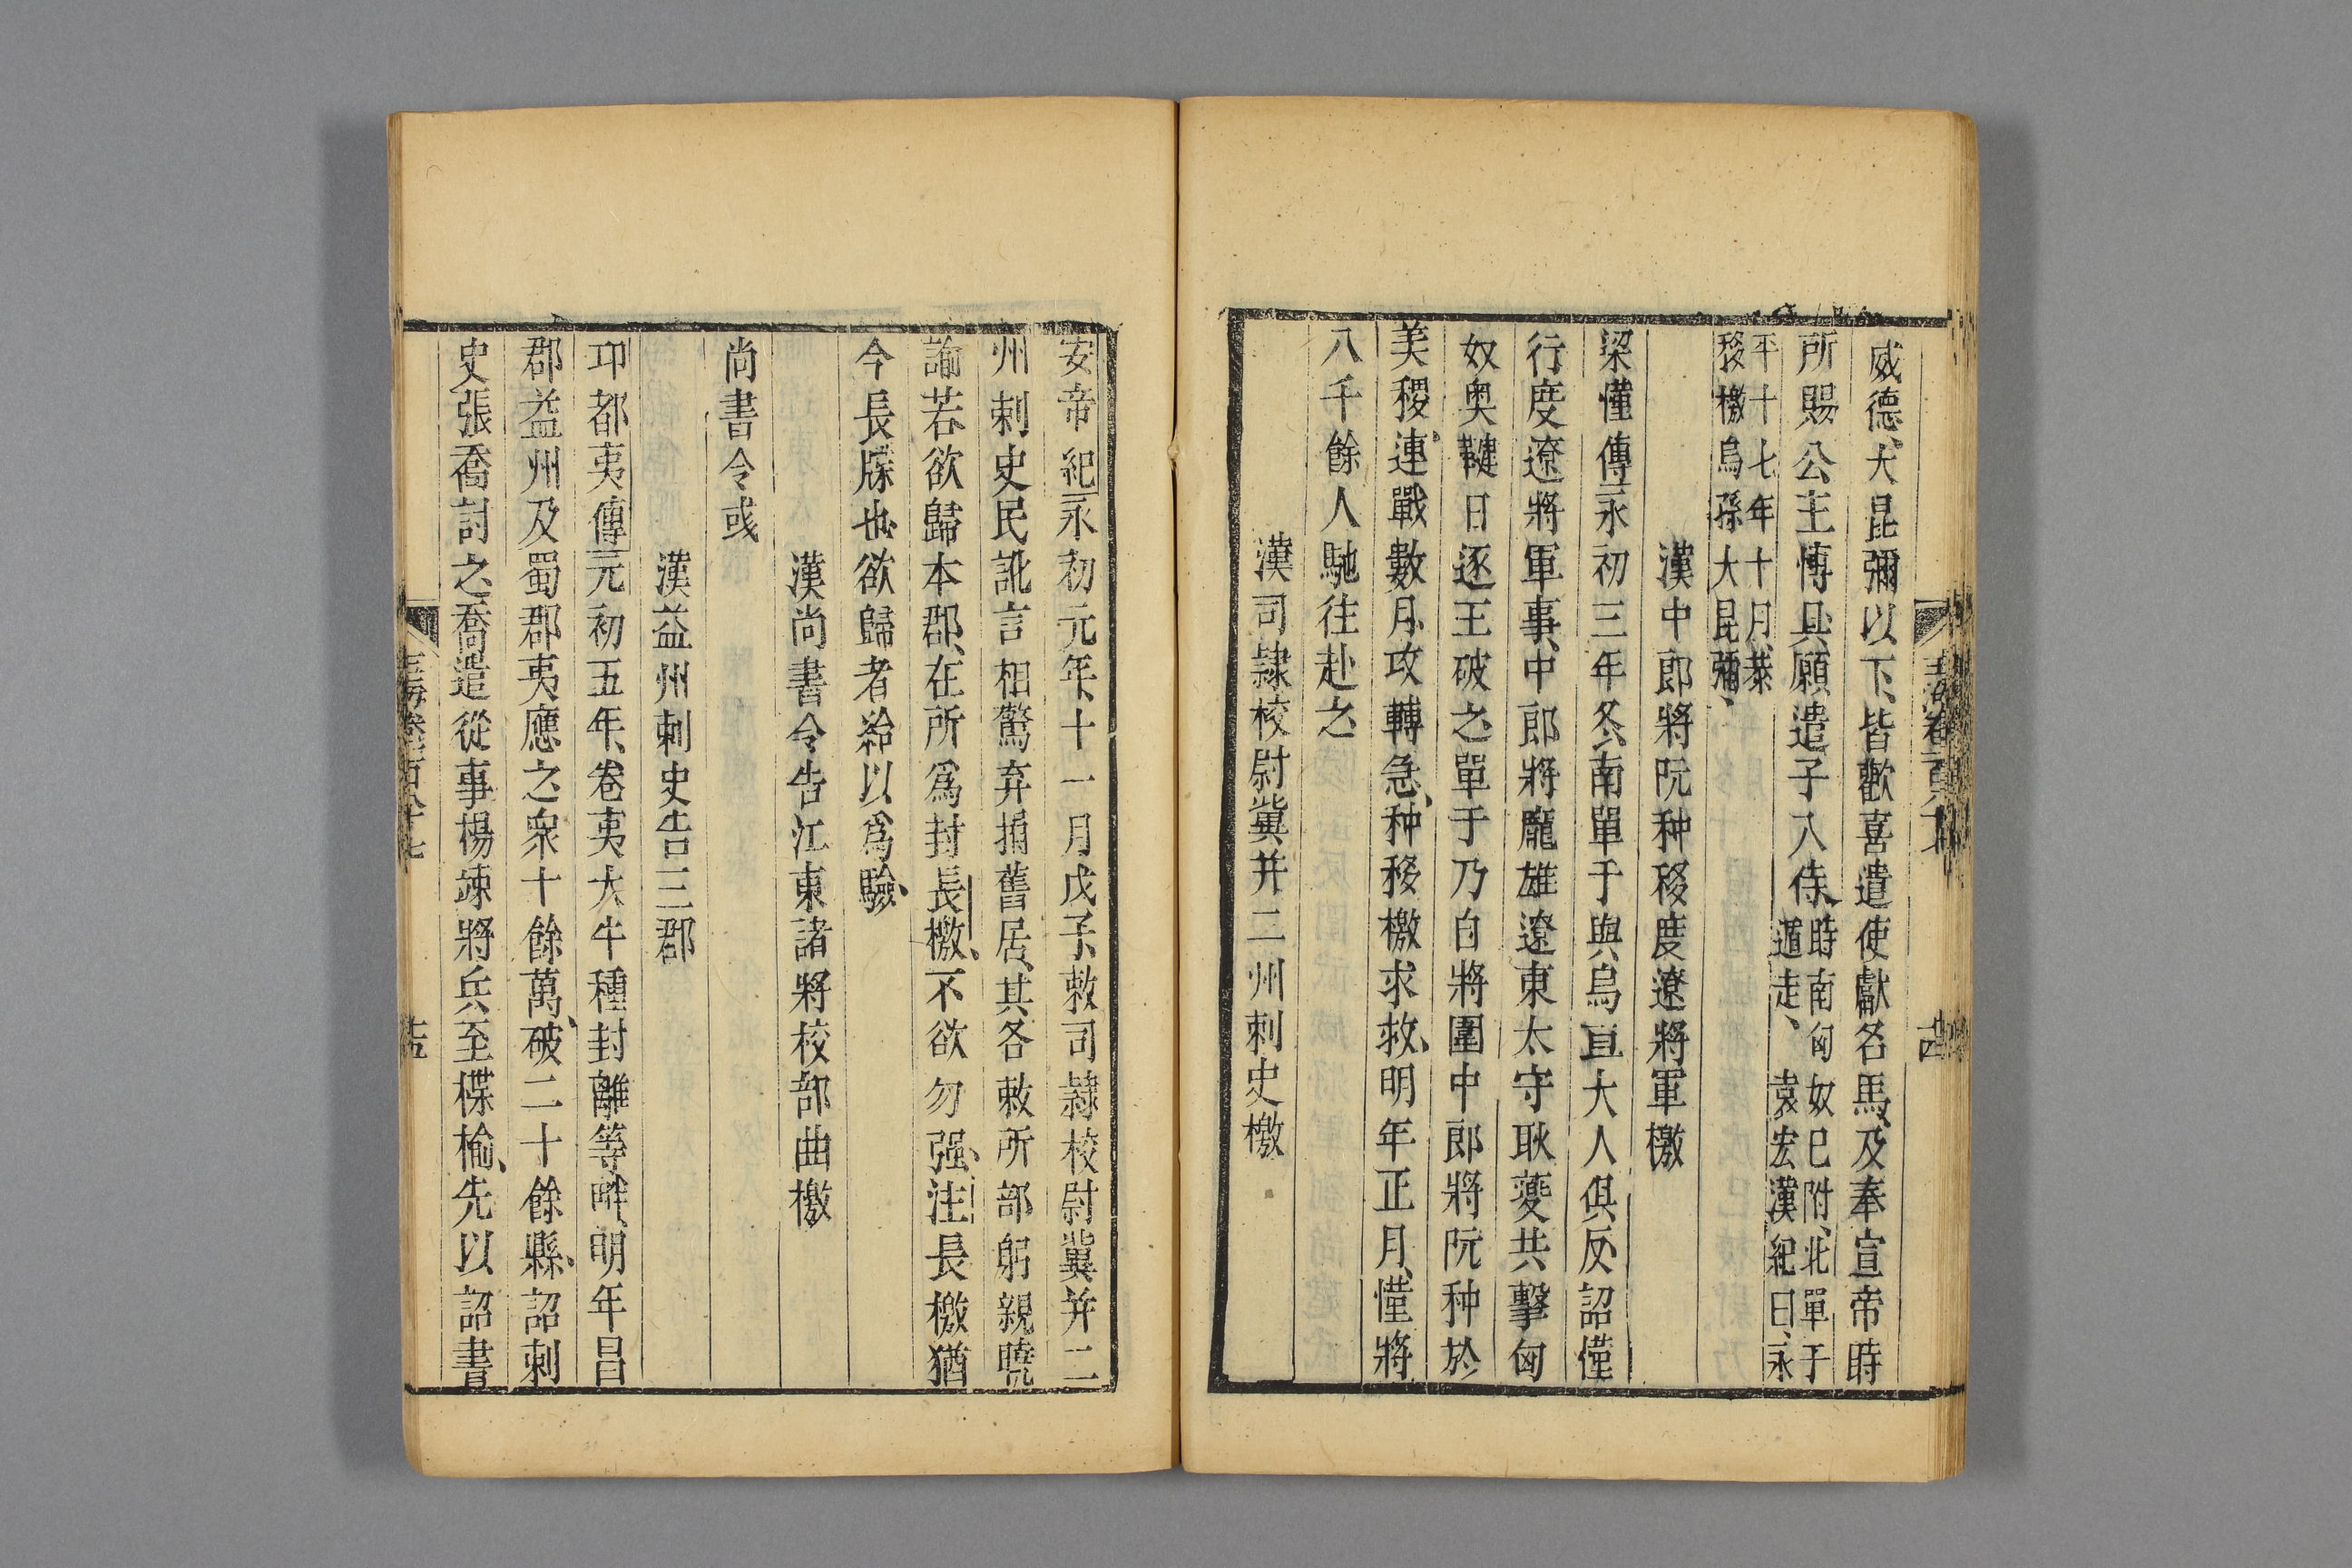 威德、大昆彌以下、皆歡喜遣使獻名馬、及奉宣帝時
所賜公主博具、願遣子入侍、時南匈奴巳附、北單于
遁走、袁宏漢紀曰、永
平十七年十月、恭
移檄烏孫大昆彌、
漢中郎將阮种移度遼將軍檄
梁慬傳永初三年冬、南單于與烏亘大人俱反、詔慬
行度遼將軍事、中郎將龐雄遼東太守耿夔共擊匈
奴奥鞬日逐王破之、單于乃自將圍中郎將阮种於
美稷、連戰數月、攻轉急、种移檄求救、明年正月、慬將
八千餘人馳往赴之
漢司隷校尉冀并二州刺史檄
玉海卷一百
安帝紀永初元年、十一月戊子、敕司隷校尉冀并二
州刺史民訛言相驚弃捐舊居、其各敕所部躬親曉
諭若欲歸本郡、在所爲封長檄、不欲勿强、注長檄猶
今長牒也、欲歸者給以爲驗、
漢尚書令告江東諸將校部曲檄
尚書令彧
漢益州刺史告三郡
卭都夷傳元初五年、卷夷大牛種封離等畔、明年昌
郡益州及蜀郡夷應之衆十餘萬、破二十餘縣、詔刺
史張喬討之、喬遣從事楊竦將兵至楪榆、先以詔書
玉海卷一百八十七
十五